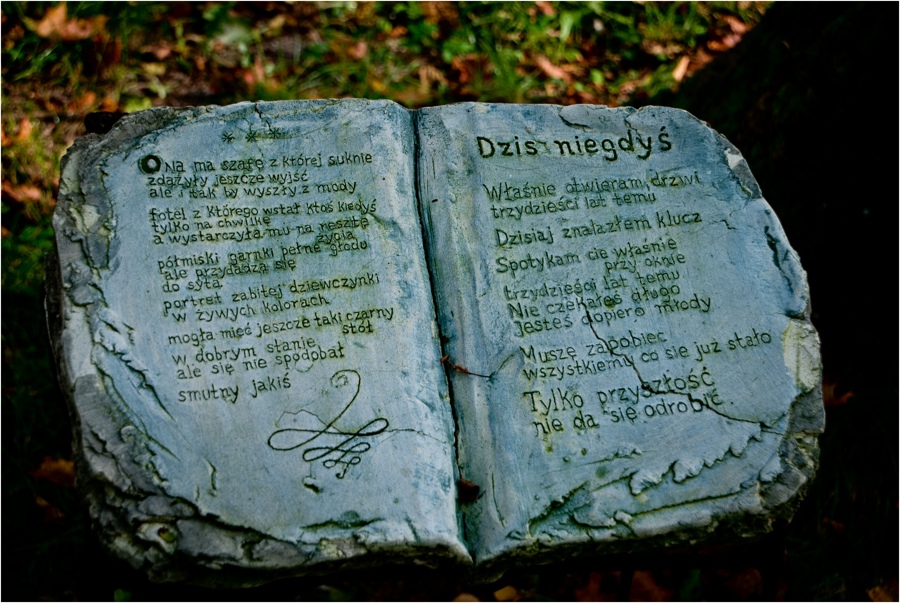 * * *
Ona ma szafę z której suknie
zdążyły jeszcze wyjść
ale i tak by wyszły z mody
fotel z którego wstał ktoś kiedyś
tylko na chwilkę
a wystarczyła mu na resztę
życia
półmiski garnki pełne głodu
ale przydadzą się
do syta
portret zabitej dziewczynki
w żywych kolorach
mogła mieć jeszcze taki czarny
stół
w dobrym stanie
ale się nie spodobał
smutny jakiś
Dziś niegdyś
Właśnie otwieram drzwi
trzydzieści lat temu
Dzisiaj znalazłem klucz
Spotykam cię właśnie
przy oknie
trzydzieści lat temu
Nie czekałeś długo
jesteś dopiero młody
Muszę zapobiec
wszystkiemu co się już stało
Tylko przyszłość
nie da się odrobić